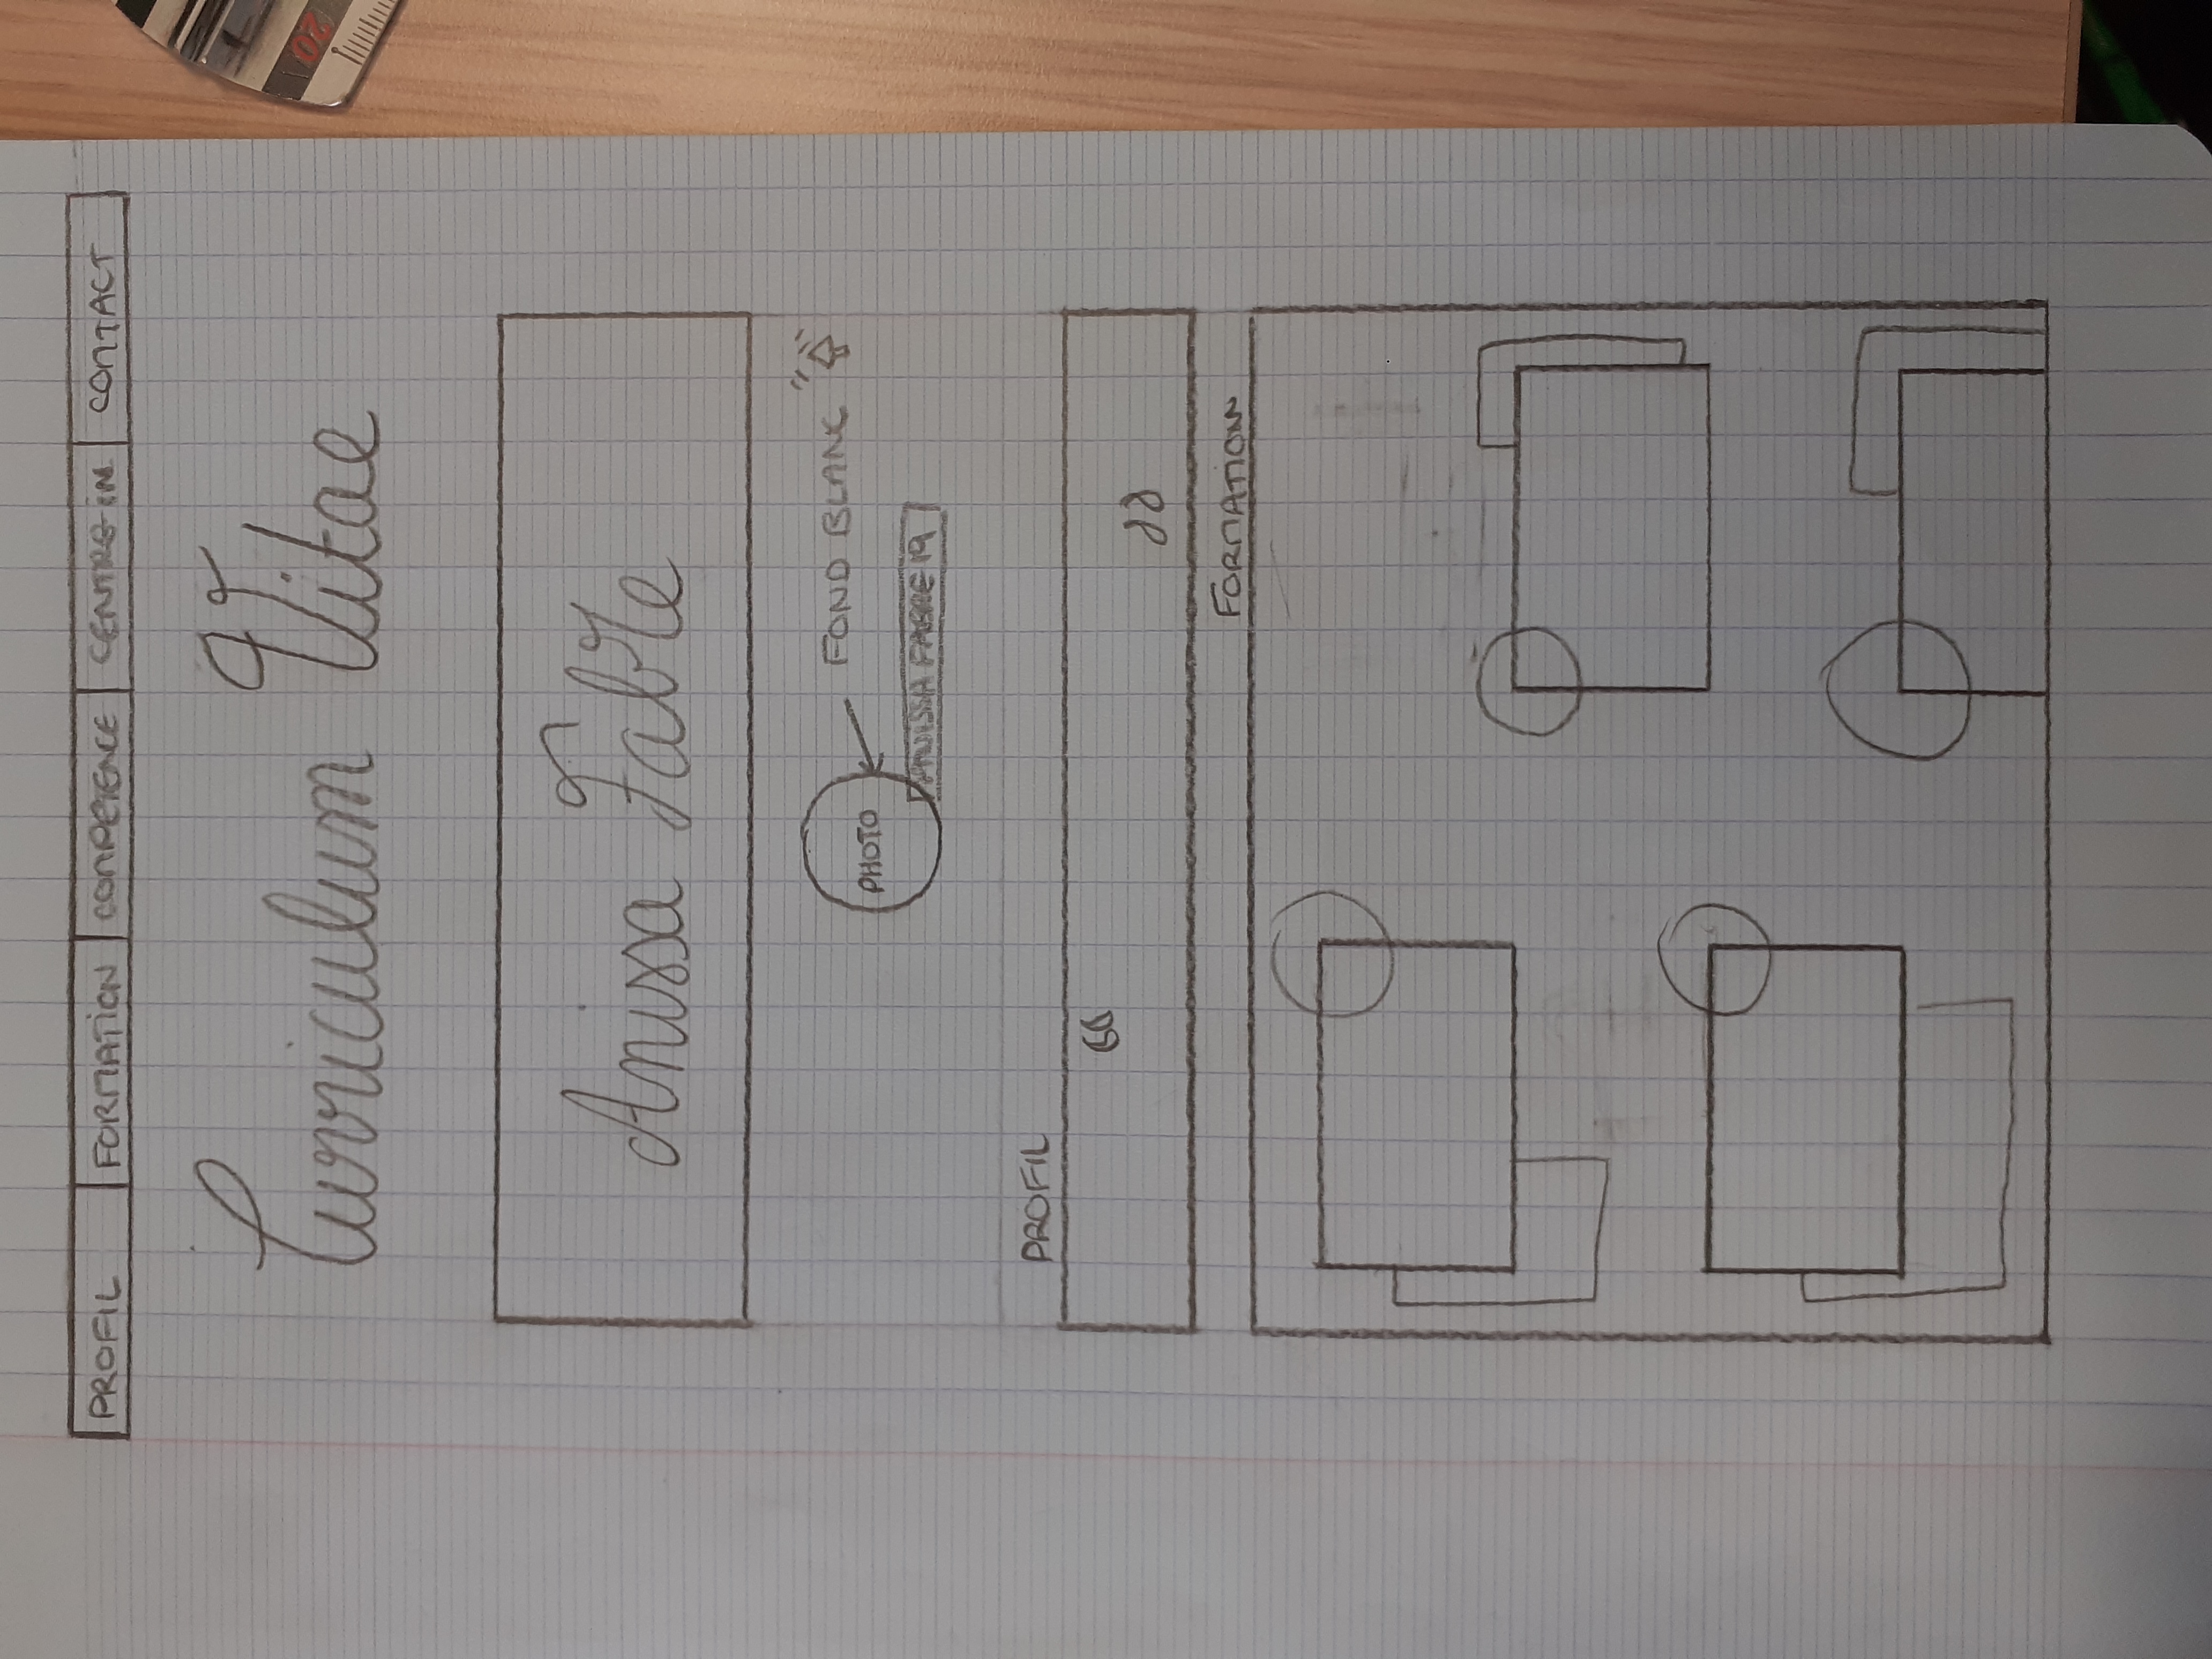 PROFIL FORMATION COMPETENCE CENTRE IN CONTACT
Curriculum Vitae
Anissa Fabre
FOND BLANC
PHOTO
ANISSA FABRE 19
PROFIL
FORMATION
20